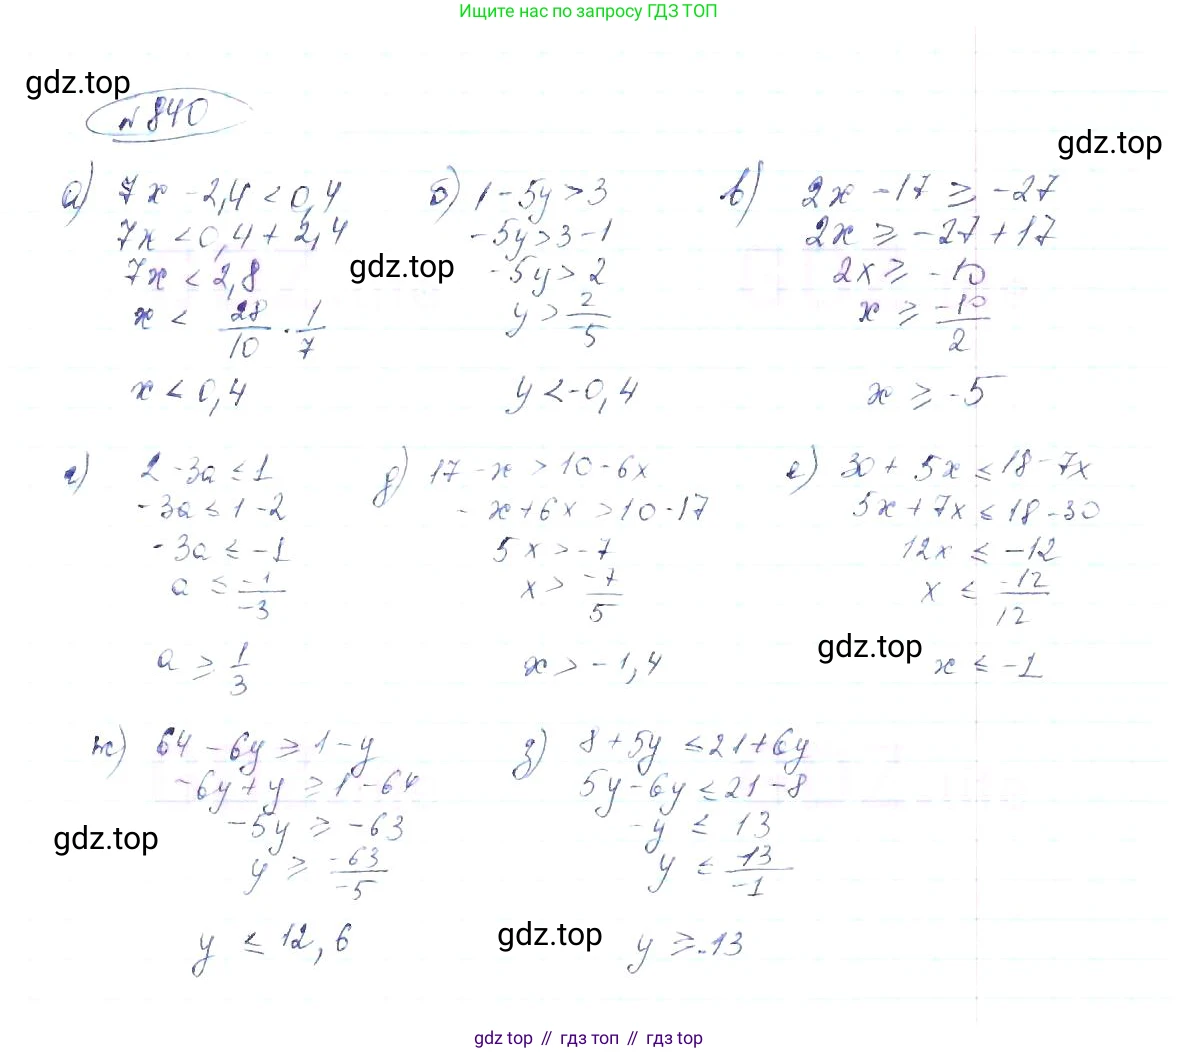 Ищите нас по запросу ГДЗ ТОП
gdz.top
№ 840
gdz.top
а) 7x - 2,4 < 0,4
7x < 0,4 + 2,4
7x < 2,8
x < 28/10 · 1/7
x < 0,4
б) 1 - 5y > 3
-5y > 3 - 1
-5y > 2
y > 2/-5
y < -0,4
gdz.top
в) 2x - 17 ≥ -27
2x ≥ -27 + 17
2x ≥ -10
x ≥ -10/2
x ≥ -5
г) 2 - 3a ≤ 1
-3a ≤ 1 - 2
-3a ≤ -1
a ≤ -1/-3
a ≥ 1/3
д) 17 - x > 10 - 6x
-x + 6x > 10 - 17
5x > -7
x > -7/5
x > -1,4
е) 30 + 5x ≤ 18 - 7x
5x + 7x ≤ 18 - 30
12x ≤ -12
x ≤ -12/12
gdz.top
x ≤ -1
ж) 64 - 6y ≥ 1 - y
-6y + y ≥ 1 - 64
-5y ≥ -63
gdz.top
y ≥ -63/-5
y ≤ 12,6
з) 8 + 5y ≤ 21 + 6y
5y - 6y ≤ 21 - 8
-y ≤ 13
y ≤ 13/-1
gdz.top
y ≥ -13
gdz top // гдз топ // гдз top